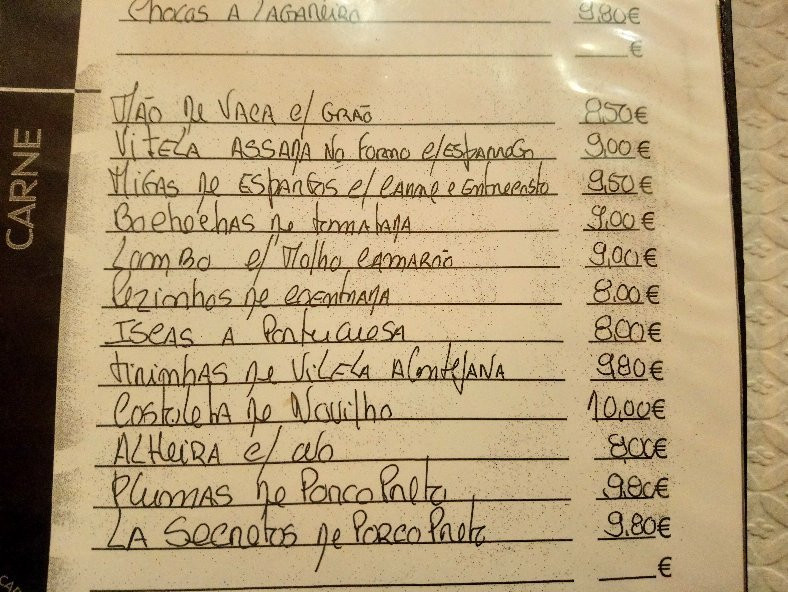 Chocas A LAGAREIRO 9,80€
€
CARNE
MÃO DE VACA c/ GRÃO 8,50€
VITELA ASSADA NO FORNO c/ESPARREGO 9,00€
MIGAS DE ESPARGOS c/ CARNE e Entrecosto 9,50€
Bochechas de tomatada 9,00€
LomBo c/ Molho CAMARÃO 9,00€
Pezinhos de coentrada 8,00€
ISCAS A PORTUGUESA 8,00€
tirinhas de VITELA Alentejana 9,80€
Costoleta de Novilho 10,00€
ALHEIRA c/ ovo 8,00€
PLUMAS de PORCO Preto 9,80€
LA Secretos de PORCO Preto 9,80€
€